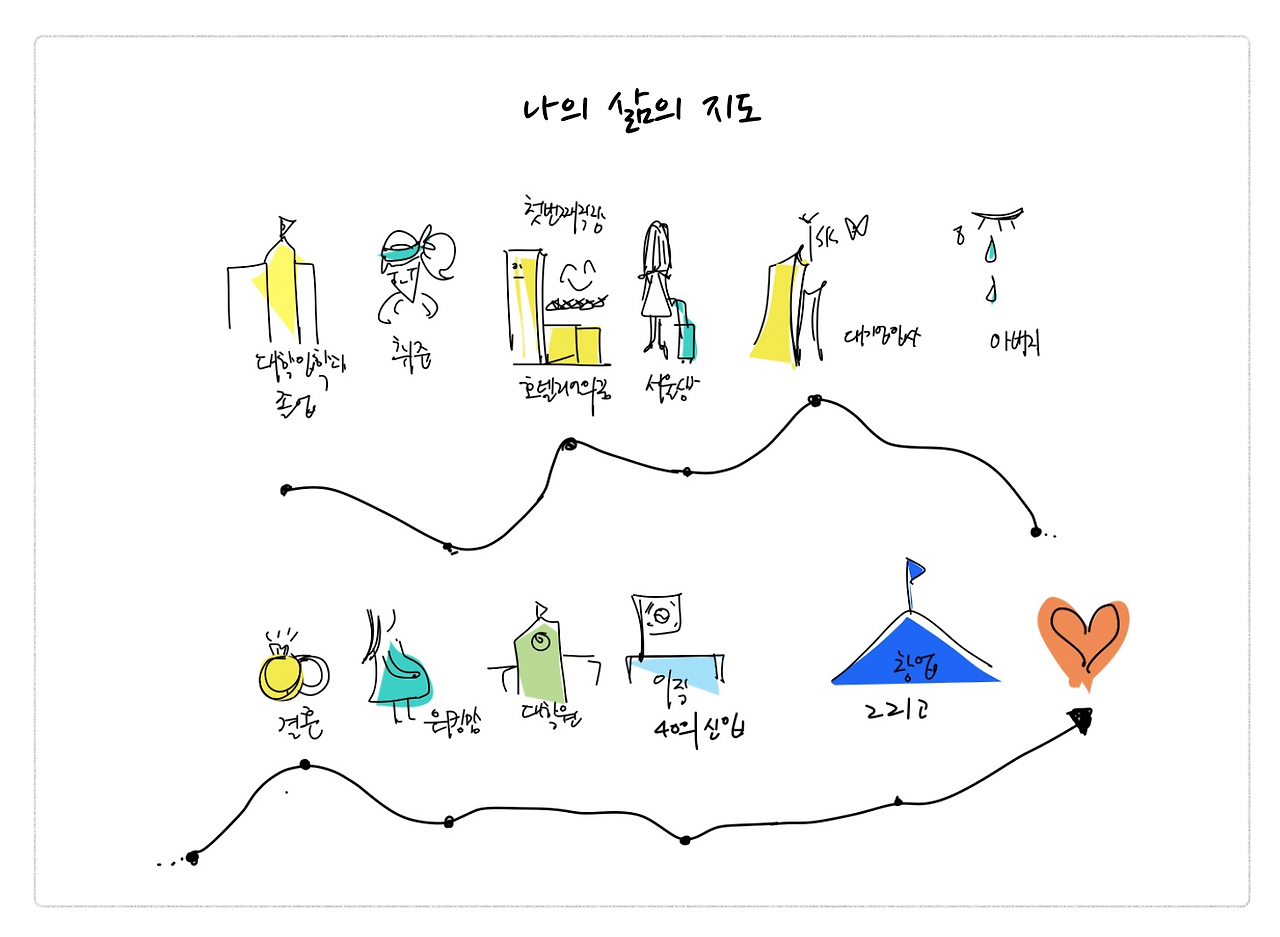 나의 삶의 지도
대학입학과
졸업
취준
첫번째직장
호텔리어의꿈
서울상경
SK
대기업입사
아버지
결혼
워킹맘
대학원
이직
40의 신입
창업
그리고